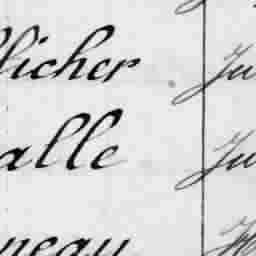 llicher Ju
alle Ju
neau